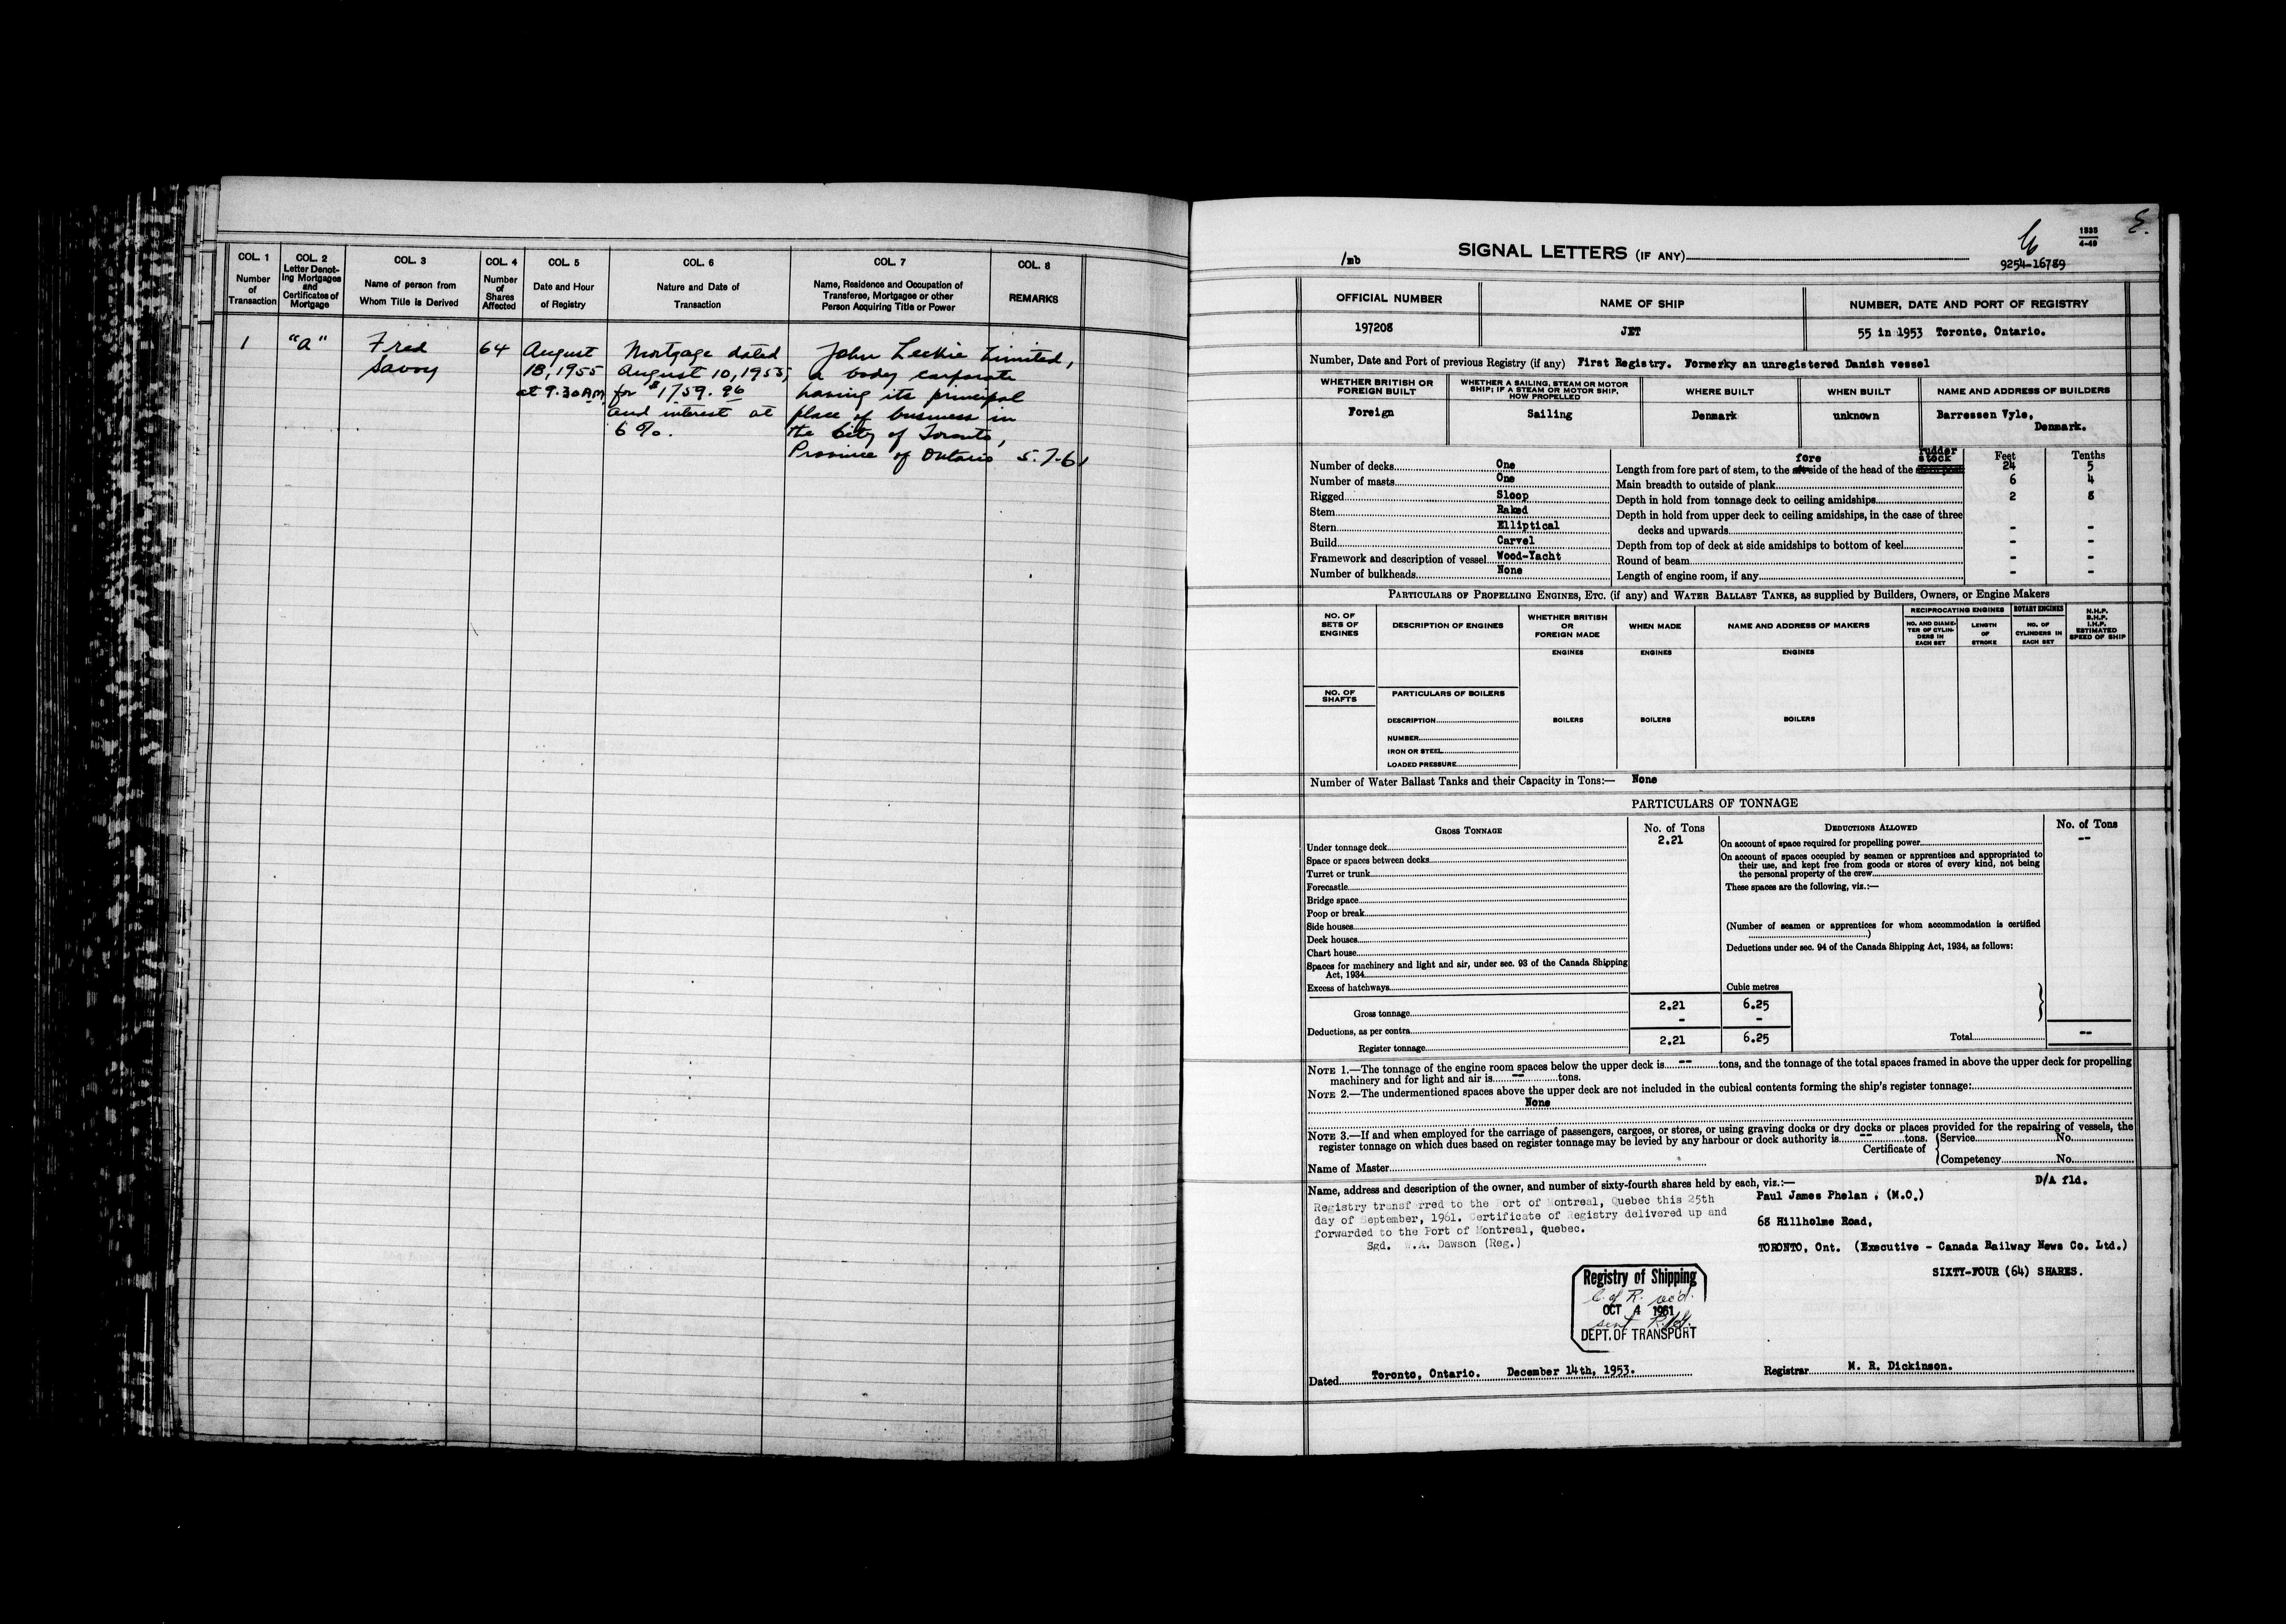 COL. 1 COL. 2 COL. 3 COL. 4 COL. 5 COL. 6 COL. 7 COL. 8
Number of Transaction
Letter Denoting Mortgages and Certificates of Mortgage
Name of person from Whom Title is Derived
Number of Shares Affected
Date and Hour of Registry
Nature and Date of Transaction
Name, Residence and Occupation of Transferee, Mortgagee or other Person Acquiring Title or Power
REMARKS
1 "a" Fred 64 August Mortgage dated John Leckie Limited,
Savoy 18, 1955 August 10, 1955, a body corporate
at 9.30 AM for $1759.96 having its principal
and interest at place of business in
6%. the City of Toronto,
Province of Ontario 5.7.61
E.
1535
4-49
/mb SIGNAL LETTERS (IF ANY)
9254-16789
OFFICIAL NUMBER NAME OF SHIP NUMBER, DATE AND PORT OF REGISTRY
197208 JET 55 in 1953 Toronto, Ontario.
Number, Date and Port of previous Registry (if any) First Registry. Formerky an unregistered Danish vessel
WHETHER BRITISH OR FOREIGN BUILT
WHETHER A SAILING, STEAM OR MOTOR SHIP; IF A STEAM OR MOTOR SHIP, HOW PROPELLED
WHERE BUILT WHEN BUILT NAME AND ADDRESS OF BUILDERS
Foreign Sailing Denmark unknown Barressen Vyle,
Denmark.
rudder
fore stock Feet Tenths
Number of decks One Length from fore part of stem, to the side of the head of the 24 5
Number of masts One Main breadth to outside of plank 6 4
Rigged Sloop Depth in hold from tonnage deck to ceiling amidships 2 8
Stem Raked Depth in hold from upper deck to ceiling amidships, in the case of three
Stern Elliptical decks and upwards - -
Build Carvel Depth from top of deck at side amidships to bottom of keel - -
Framework and description of vessel Wood-Yacht Round of beam - -
Number of bulkheads None Length of engine room, if any - -
PARTICULARS OF PROPELLING ENGINES, ETC. (if any) and WATER BALLAST TANKS, as supplied by Builders, Owners, or Engine Makers
NO. OF SETS OF ENGINES
DESCRIPTION OF ENGINES
WHETHER BRITISH OR FOREIGN MADE
WHEN MADE
NAME AND ADDRESS OF MAKERS
RECIPROCATING ENGINES ROTARY ENGINES
NO. AND DIAMETER OF CYLINDERS IN EACH SET
LENGTH OF STROKE
NO. OF CYLINDERS IN EACH SET
N.H.P. B.H.P. I.H.P. ESTIMATED SPEED OF SHIP
ENGINES ENGINES ENGINES
NO. OF SHAFTS PARTICULARS OF BOILERS
DESCRIPTION BOILERS BOILERS BOILERS
NUMBER
IRON OR STEEL
LOADED PRESSURE
Number of Water Ballast Tanks and their Capacity in Tons:— None
PARTICULARS OF TONNAGE
GROSS TONNAGE No. of Tons DEDUCTIONS ALLOWED No. of Tons
Under tonnage deck 2.21 On account of space required for propelling power --
Space or spaces between decks On account of spaces occupied by seamen or apprentices and appropriated to
their use, and kept free from goods or stores of every kind, not being
Turret or trunk the personal property of the crew
Forecastle These spaces are the following, viz.:—
Bridge space
Poop or break
Side houses (Number of seamen or apprentices for whom accommodation is certified
Deck houses )
Chart house Deductions under sec. 94 of the Canada Shipping Act, 1934, as follows:
Spaces for machinery and light and air, under sec. 93 of the Canada Shipping
Act, 1934
Excess of hatchways Cubic metres
Gross tonnage 2.21 6.25
Deductions, as per contra - -
Register tonnage 2.21 6.25 Total --
NOTE 1.—The tonnage of the engine room spaces below the upper deck is -- tons, and the tonnage of the total spaces framed in above the upper deck for propelling
machinery and for light and air is -- tons.
NOTE 2.—The undermentioned spaces above the upper deck are not included in the cubical contents forming the ship's register tonnage:
None
NOTE 3.—If and when employed for the carriage of passengers, cargoes, or stores, or using graving docks or dry docks or places provided for the repairing of vessels, the
register tonnage on which dues based on register tonnage may be levied by any harbour or dock authority is -- tons.
Certificate of { Service No.
Name of Master Competency No.
Name, address and description of the owner, and number of sixty-fourth shares held by each, viz.:— D/A fld.
Registry transferred to the Port of Montreal, Quebec this 25th
day of September, 1961. Certificate of Registry delivered up and
forwarded to the Port of Montreal, Quebec.
Sgd. W.A. Dawson (Reg.)
Paul James Phelan, (M.O.)
68 Hillholme Road,
TORONTO, Ont. (Executive - Canada Railway News Co. Ltd.)
SIXTY-FOUR (64) SHARES.
Registry of Shipping
C. of R. rec'd.
OCT 4 1961
sent
DEPT. OF TRANSPORT
Dated Toronto, Ontario. December 14th, 1953. Registrar M. R. Dickinson.